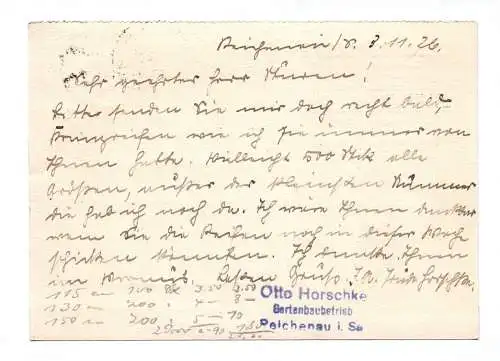 Reichenau i/S. 3.11.26.
Sehr geehrter Herr !
Bitte senden Sie mir doch recht bald,
Kranzreifen wie ich sie immer von
Ihnen hatte. Vielleicht 500 Stck alle
Größen, außer der kleinsten Nummer
die hab ich noch da. Ich wäre Ihnen dankbar
wenn Sie die Reifen noch in dieser Woche
schicken könnten. Ich danke Ihnen
im Voraus. Besten Gruß. Horschke.
115 cm 100 3.50 3.50
130 " 200 4 - 8 -
150 " 200 5 - 10
Otto Horschke
Gartenbaubetrieb
Reichenau i. Sa